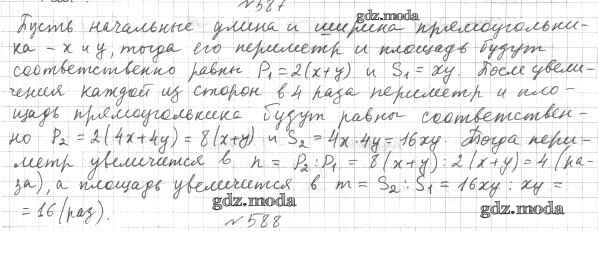 №587
gdz.moda
Пусть начальные длина и ширина прямоугольни-
ка - x и y, тогда его периметр и площадь будут
соответственно равны P₁=2(x+y) и S₁=xy. После увели-
чения каждой из сторон в 4 раза периметр и пло-
щадь прямоугольника будут равны соответствен-
но P₂=2(4x+4y)=8(x+y) и S₂=4x·4y=16xy. Тогда пери-
метр увеличится в n=P₂:P₁=8(x+y):2(x+y)=4 (ра-
за), а площадь увеличится в m=S₂:S₁=16xy:xy=
=16 (раз).
gdz.moda
gdz.moda
№588